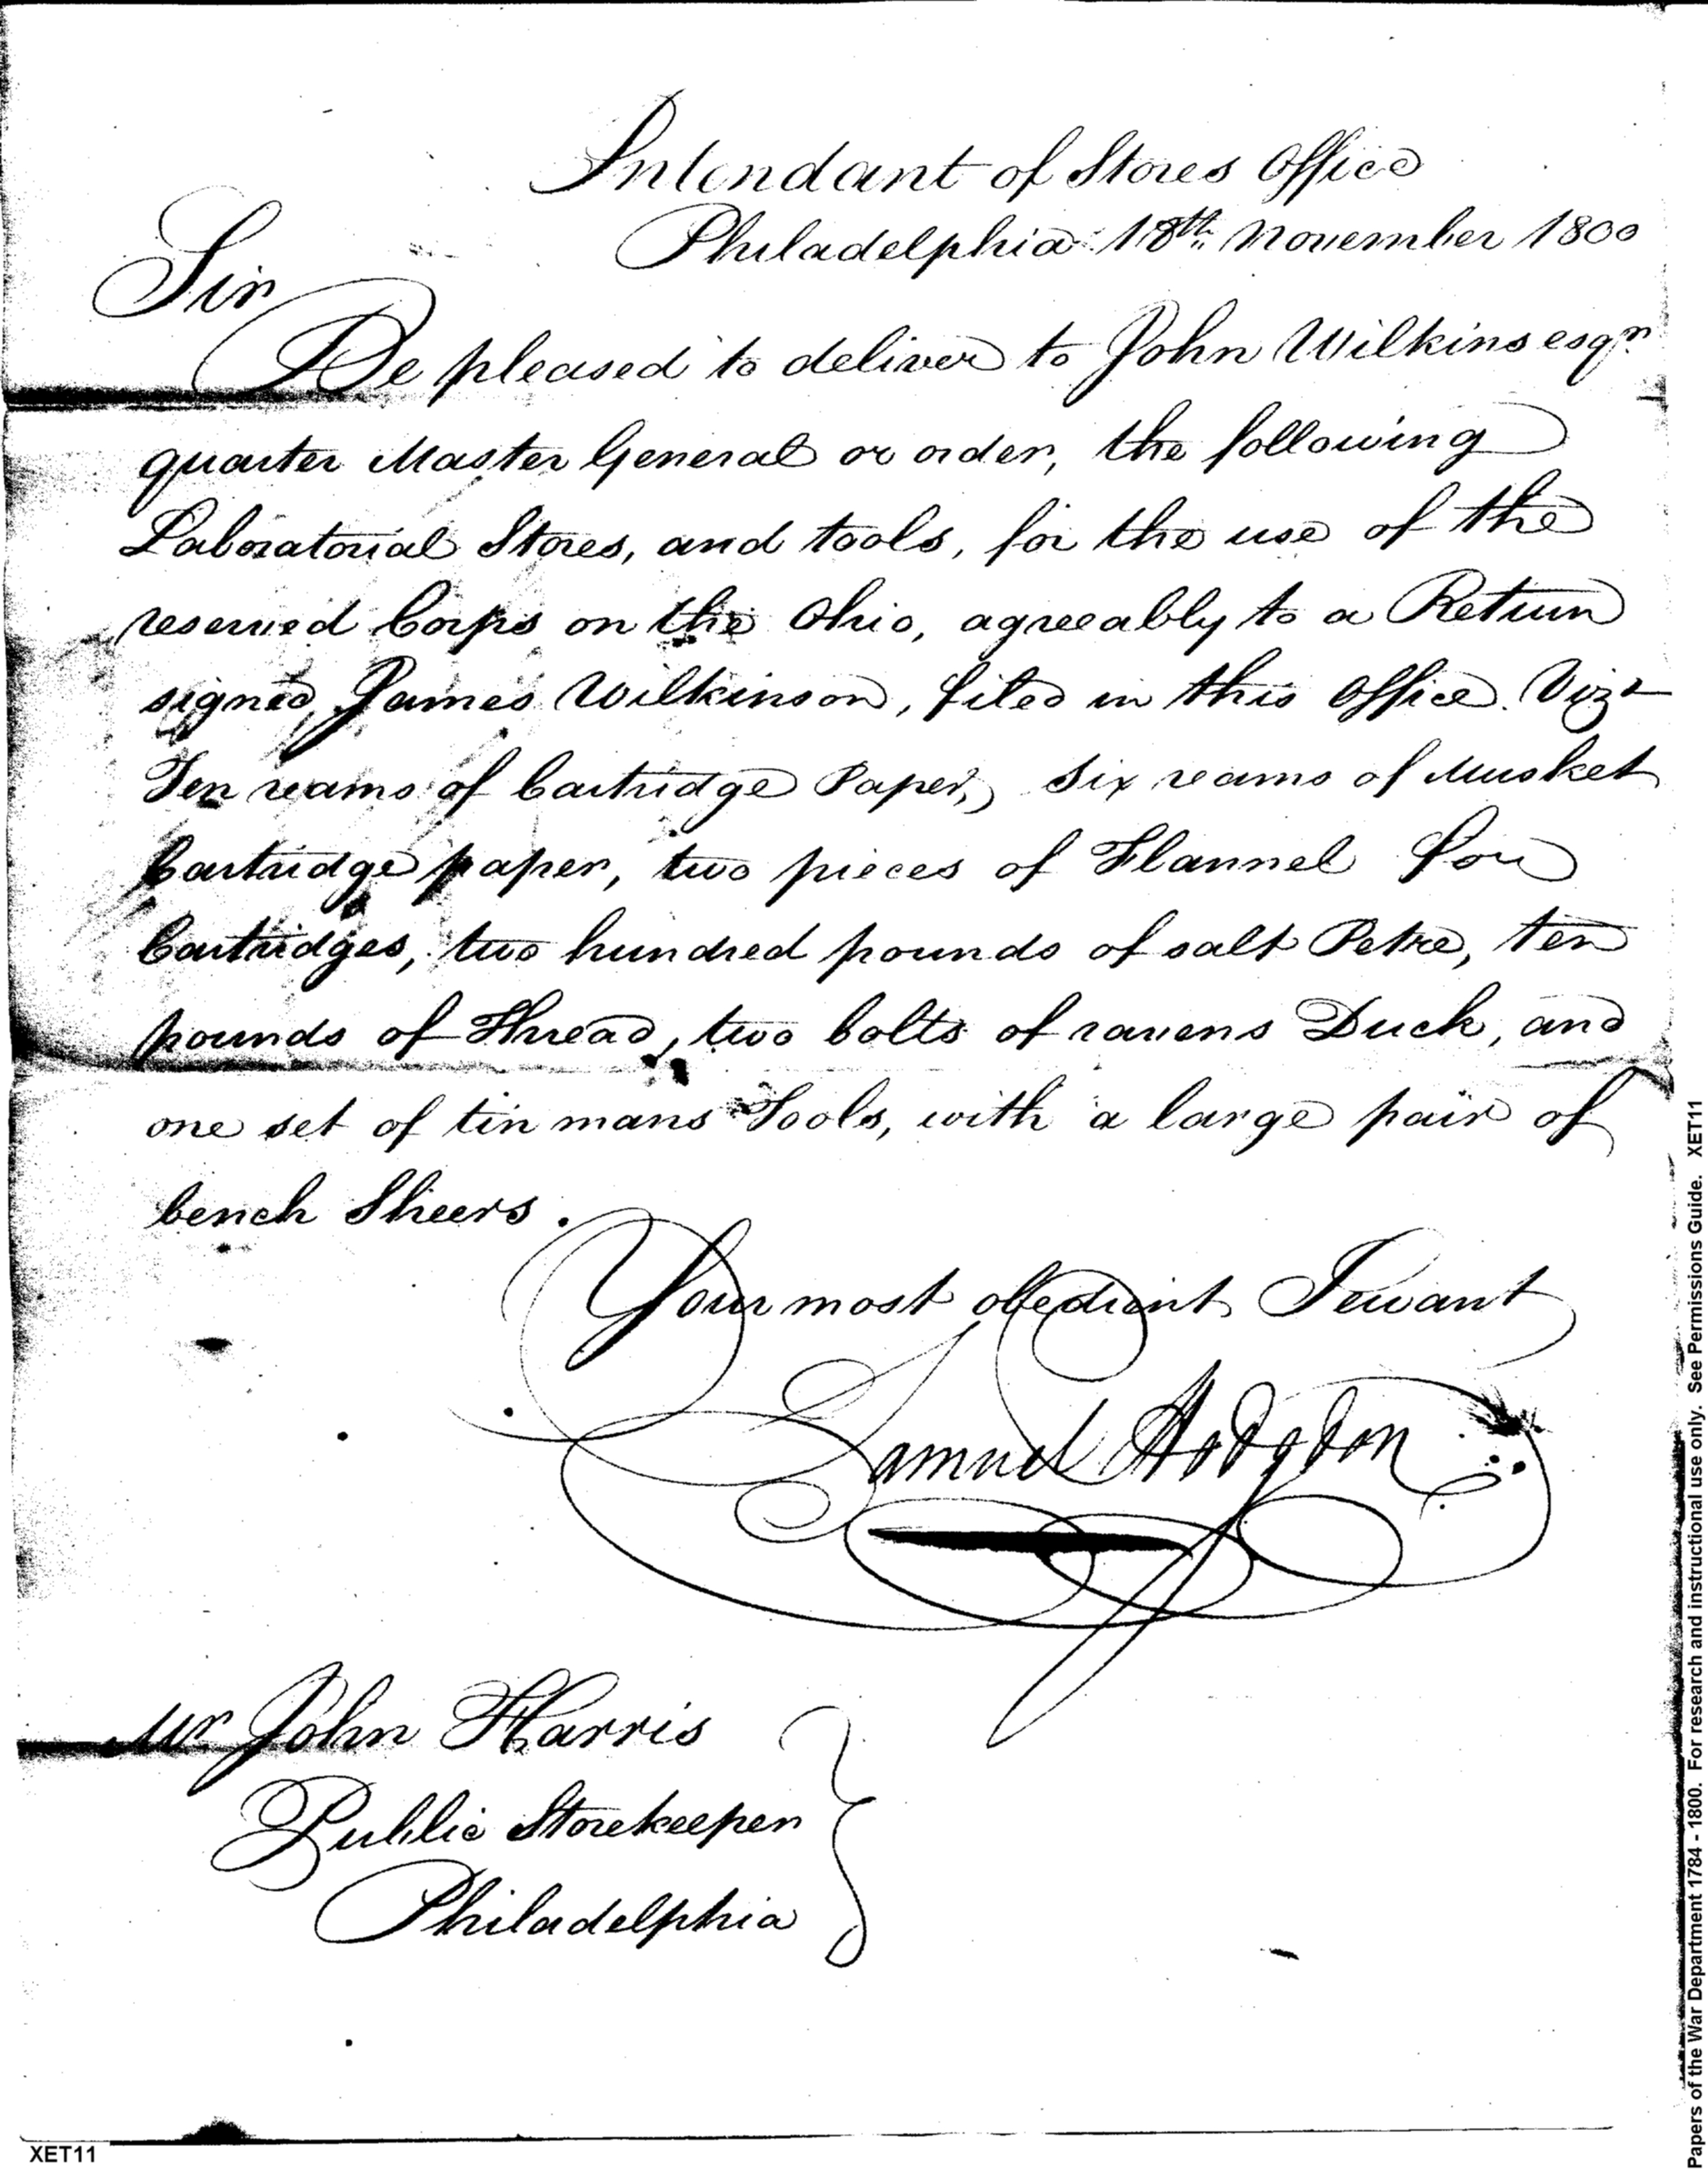 Intendant of Stores Office
Philadelphia 18th November 1800
Sir
Be pleased to deliver to John Wilkins esqr.
quarter Master General or order, the following
Laboratorial Stores, and tools, for the use of the
reserved Corps on the Ohio, agreeably to a Return
signed, James Wilkinson, filed in this Office. Vizt
Ten reams of Cartridge Paper, Six reams of Musket
Cartridge paper, two pieces of Flannel for
Cartridges, two hundred pounds of salt Petre, ten
pounds of Thread, two bolts of ravens Duck, and
one set of tin mans Tools, with a large pair of
bench Sheers.
Your most obedient Servant
Samuel Hodgdon
Mr John Harris
Public Storekeeper
Philadelphia
XET11
Papers of the War Department 1784 - 1800. For research and instructional use only. See Permissions Guide. XET11